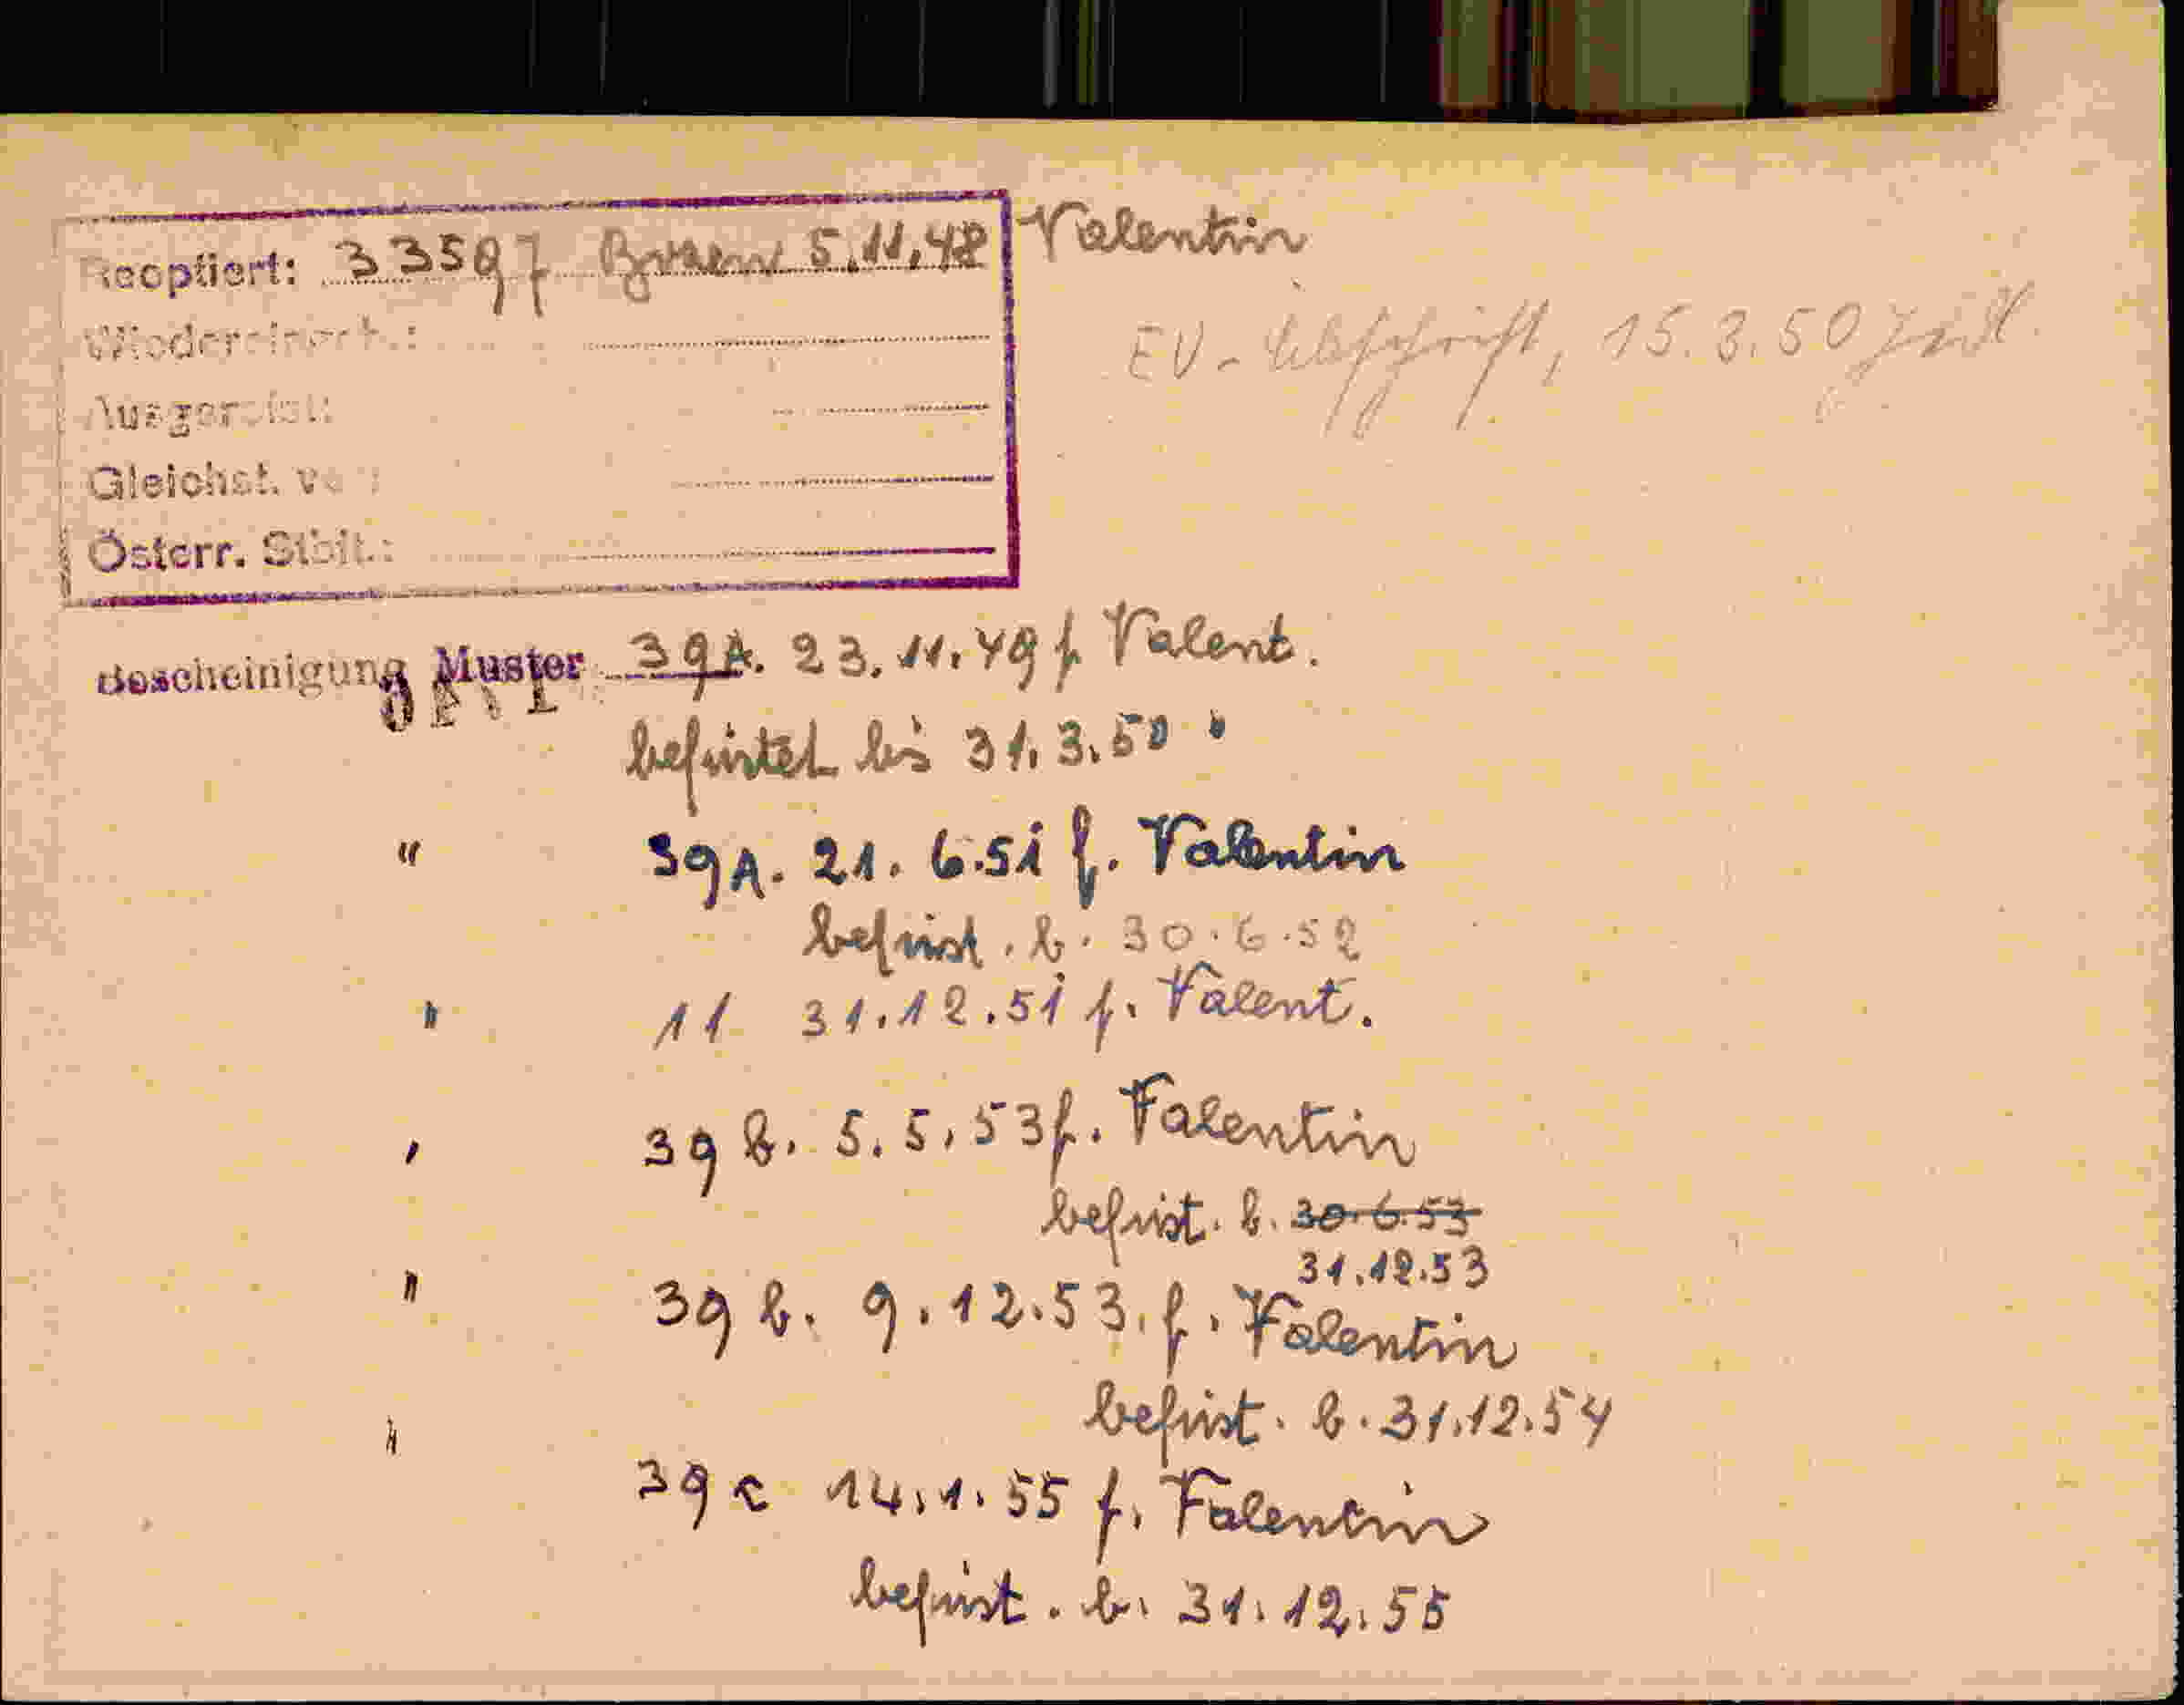 Reoptiert: 33597 Bozen 5.11.48 Valentin
EV - Abschrift, 15.3.50
Wiedereinerb.:
Ausgereist:
Gleichst. v
Österr. Stbft.:
Bescheinigung Muster 39A. 23.11.49 f Valent.
befristet bis 31.3.50 "
" 39A. 21.6.51 f. Valentin
befrist. b. 30.6.52
" 11 31.12.51 f. Valent.
" 39 b. 5.5.53 f. Valentin
befrist. b. 30.6.53
31.12.53
" 39 b. 9.12.53. f. Valentin
befrist. b. 31.12.54
" 39 c 14.1.55 f. Valentin
befrist. b. 31.12.55